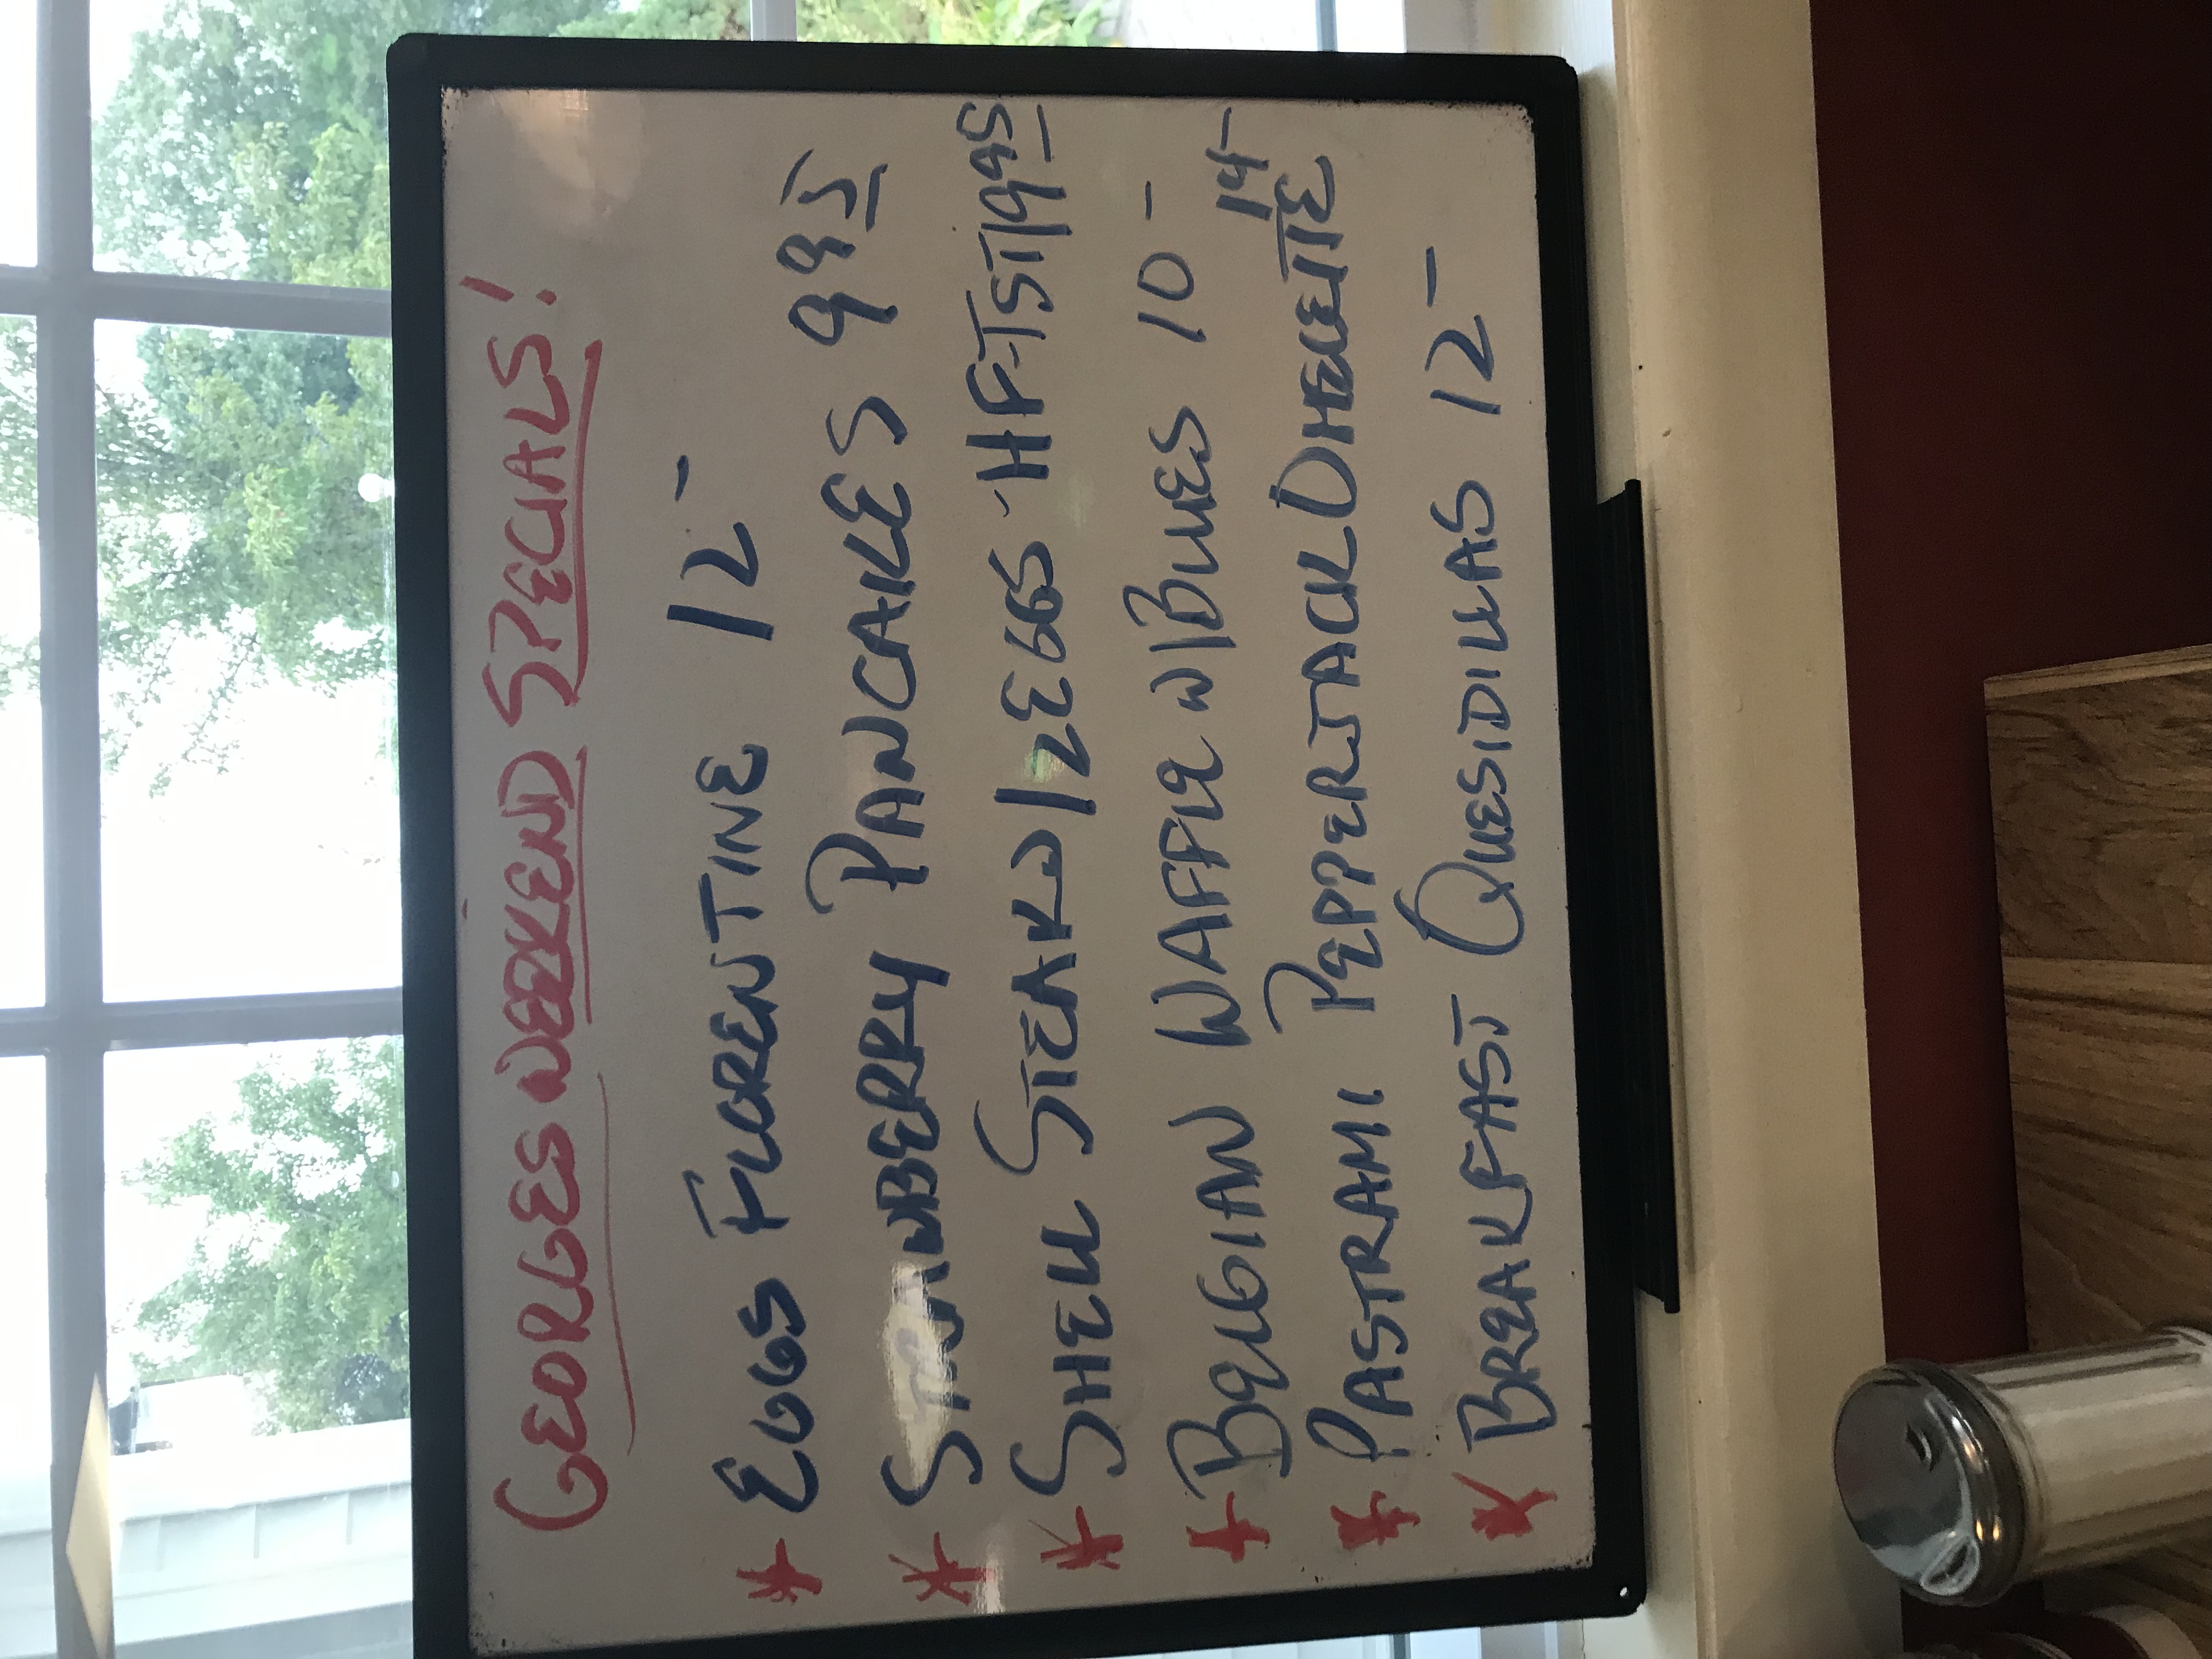 GEORGES WEEKEND SPECIALS!
* EGGS FLORENTINE 12-
* STRAWBERRY PANCAKES 995
* SHELL STEAK W/2EGGS-HF-TST 1995
* BELGIAN WAFFLE W/BLUES 10-
* PASTRAMI PEPPERJACK OMELETTE 14-
* BREAKFAST QUESIDILLAS 12-